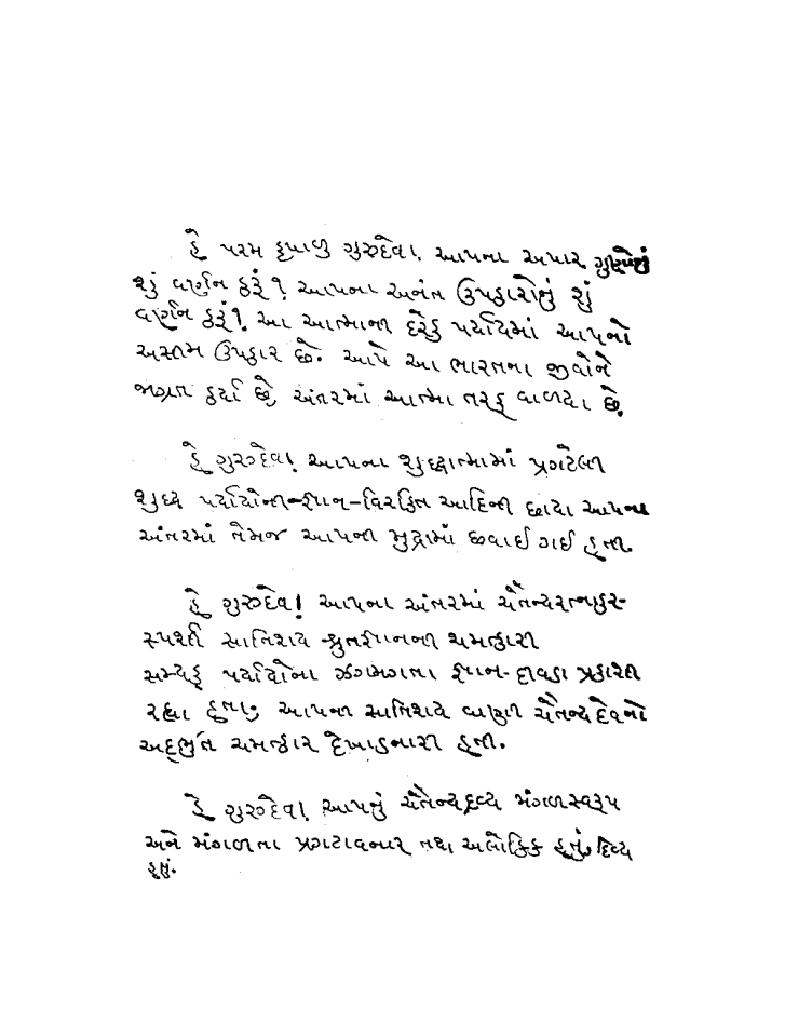 હે પરમ કૃપાળુ ગુરુદેવ! આપના અપાર ગુણોનું
શું વર્ણન કરૂં? આપના અનંત ઉપકારોનું શું
વર્ણન કરૂં? આ આત્માની દરેક પર્યાયમાં આપનો
અસીમ ઉપકાર છે. આપે આ ભારતના જીવોને
જાગ્રત કર્યા છે, અંતરમાં આત્મા તરફ વાળ્યા છે.
હે ગુરુદેવ! આપના શુદ્ધાત્મામાં પ્રગટેલી
શુદ્ધ પર્યાયોની-જ્ઞાન-વિરક્તિ આદિની છાયા આપના
અંતરમાં તેમજ આપની મુદ્રામાં છવાઈ ગઈ હતી.
હે ગુરુદેવ! આપના અંતરમાં ચૈતન્યરત્નાકર-
સ્પર્શી સાતિશય શ્રુતજ્ઞાનની ચમત્કારી
સમ્યક્ પર્યાયોના ઝગમગતા જ્ઞાન-દીવડા પ્રકાશી
રહ્યા હતા; આપની સાતિશય વાણી ચૈતન્યદેવનો
અદ્ભુત ચમત્કાર દેખાડનારી હતી.
હે ગુરુદેવ! આપનું ચૈતન્યદ્રવ્ય મંગળસ્વરૂપ
અને મંગળતા પ્રગટાવનાર તથા અલૌકિક હતું, દિવ્ય
હતું.